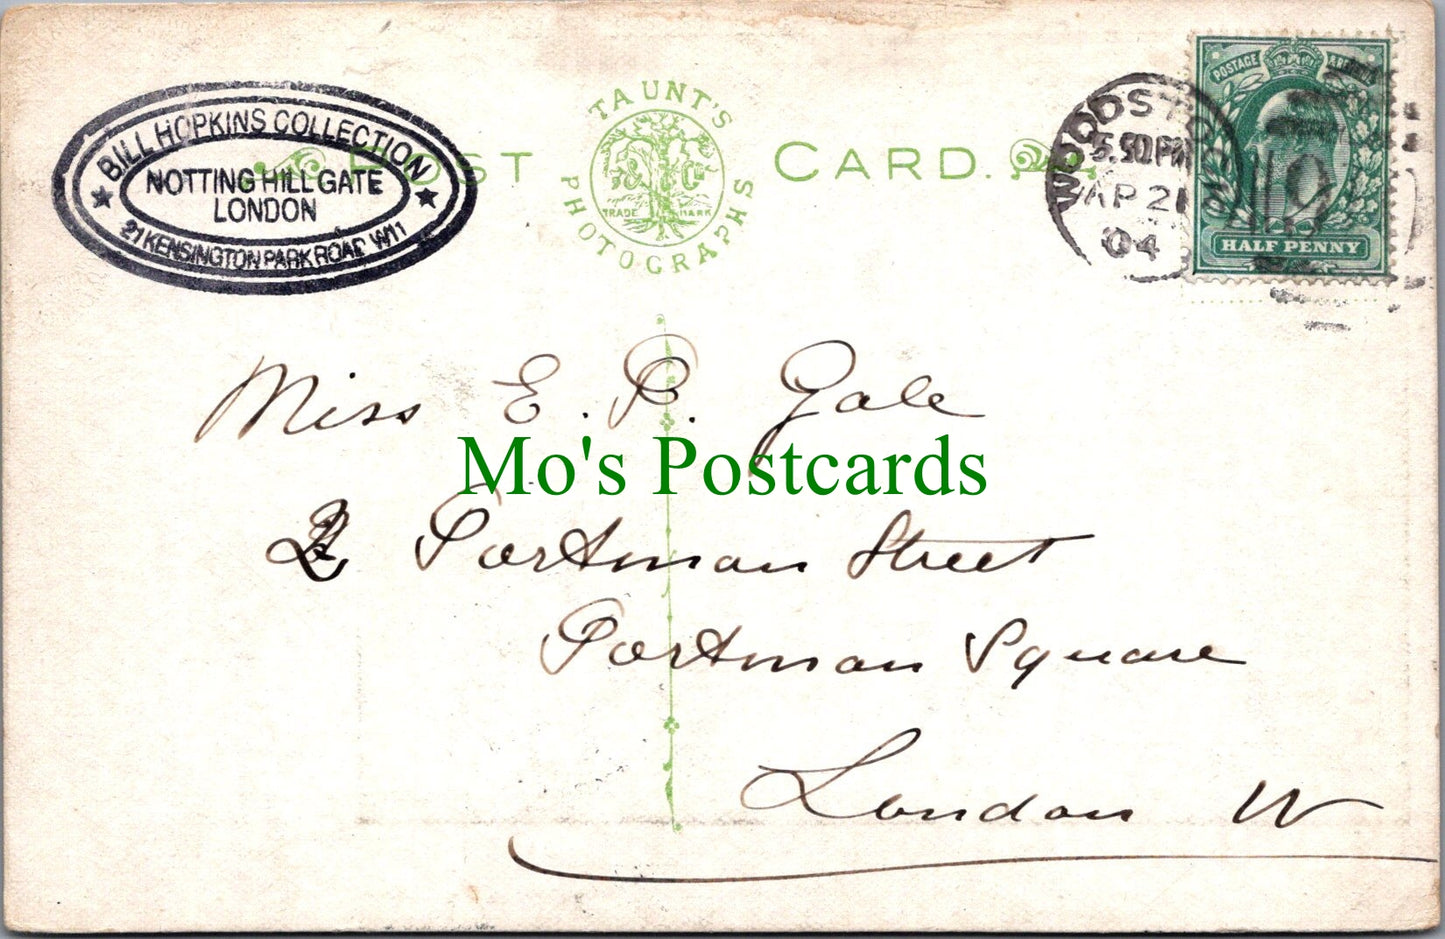 BILL HOPKINS COLLECTION
NOTTING HILL GATE
LONDON
21 KENSINGTON PARK ROAD W11
POST CARD.
TAUNT'S
& Co
TRADE MARK
PHOTOGRAPHS
WOODSTOCK
5.50 PM
AP 21
04
POSTAGE
HALF PENNY
Miss E. P. Gale
Mo's Postcards
2 Portman Street
Portman Square
London W